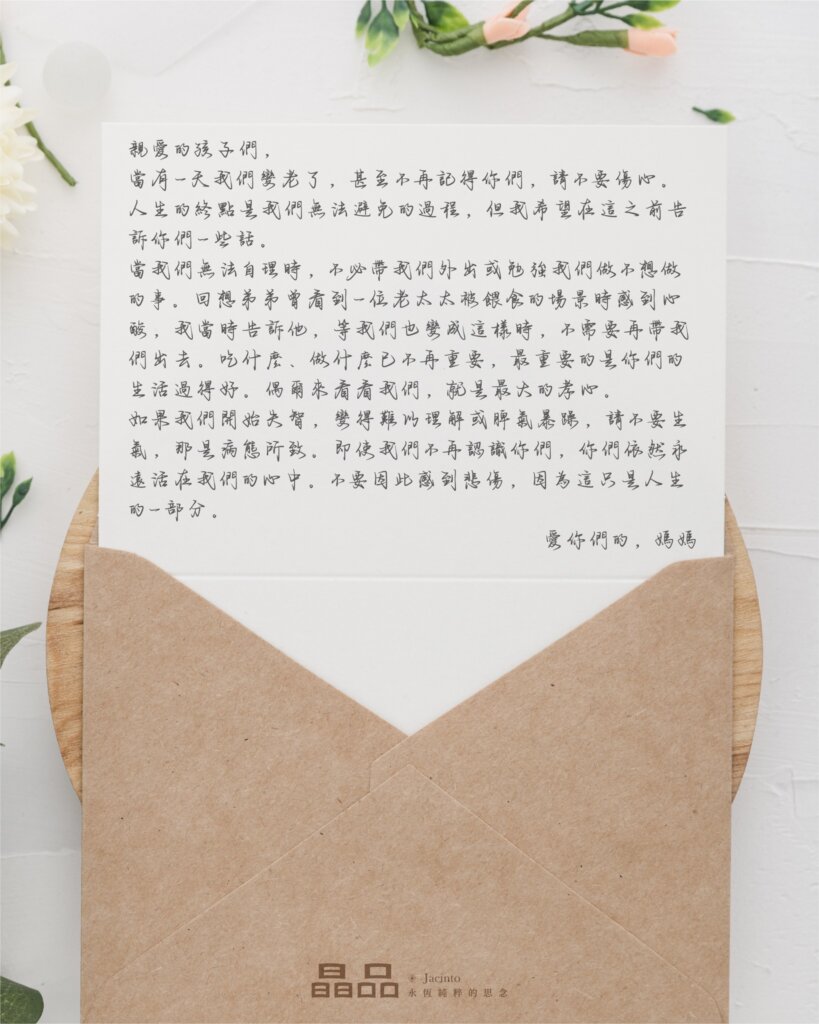 親愛的孩子們，
當有一天我們變老了，甚至不再記得你們，請不要傷心。
人生的終點是我們無法避免的過程，但我希望在這之前告
訴你們一些話。
當我們無法自理時，不必帶我們外出或勉強我們做不想做
的事。回想弟弟曾看到一位老太太被餵食的場景時感到心
酸，我當時告訴他，等我們也變成這樣時，不需要再帶我
們出去。吃什麼、做什麼已不再重要，最重要的是你們的
生活過得好。偶爾來看看我們，就是最大的孝心。
如果我們開始失智，變得難以理解或脾氣暴躁，請不要生
氣，那是病態所致。即使我們不再認識你們，你們依然永
遠活在我們的心中。不要因此感到悲傷，因為這只是人生
的一部分。
愛你們的，媽媽
晶品 Jacinto
永恆純粹的思念